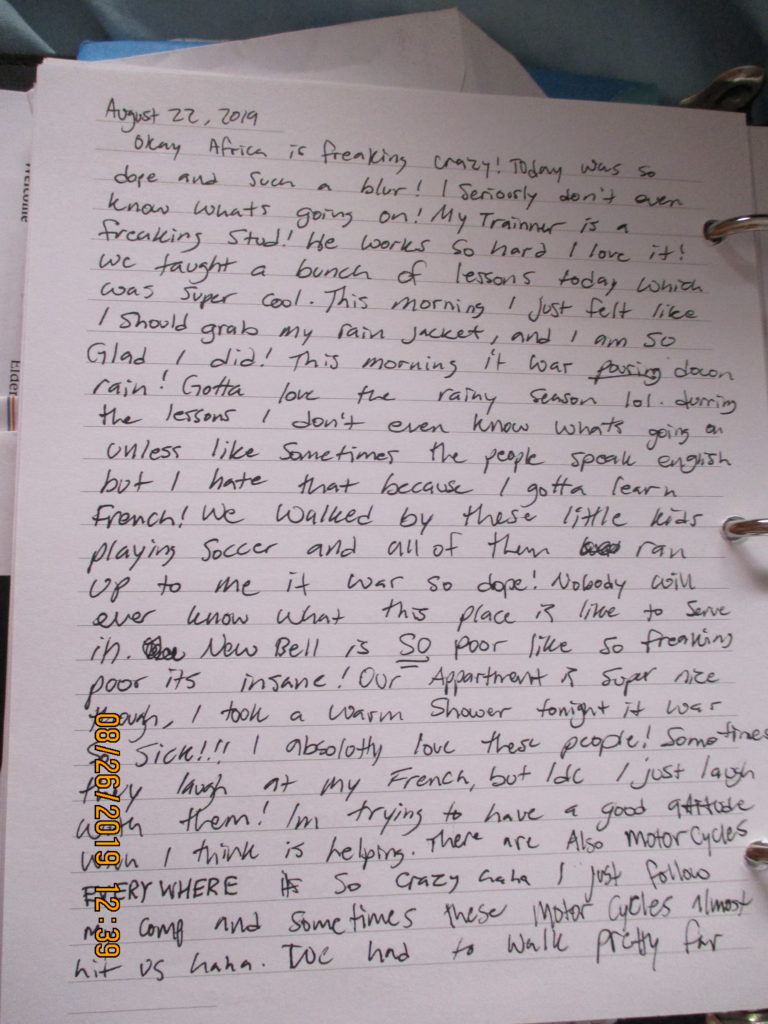 August 22, 2019
Okay Africa is freaking crazy! Today was so
dope and such a blur! I Seriously don't even
know whats going on! My Trainner is a
freaking Stud! He works so hard I love it!
We taught a bunch of lessons today which
was super cool. This morning I just felt like
I should grab my rain jacket, and I am so
Glad I did! This morning it was pouring down
rain! Gotta love the rainy season lol. durring
the lessons I don't even know whats going on
unless like sometimes the people speak english
but I hate that because I gotta learn
French! We walked by these little kids
playing soccer and all of them ran
up to me it was so dope! Nobody will
ever know what this place is like to serve
in. New Bell is SO poor like so freaking
poor its insane! Our Appartment is super nice
though, I took a warm shower tonight it was
Sick!!! I absolotly love these people! Sometimes
they laugh at my French, but Idc I just laugh
with them! Im trying to have a good attitude
I think is helping. There are Also MotorCycles
EVERYWHERE its So crazy haha I just follow
my comp and sometimes these Motor Cycles almost
hit us haha. We had to walk pretty far
08/26/2019 12:39
Welcome
Elder